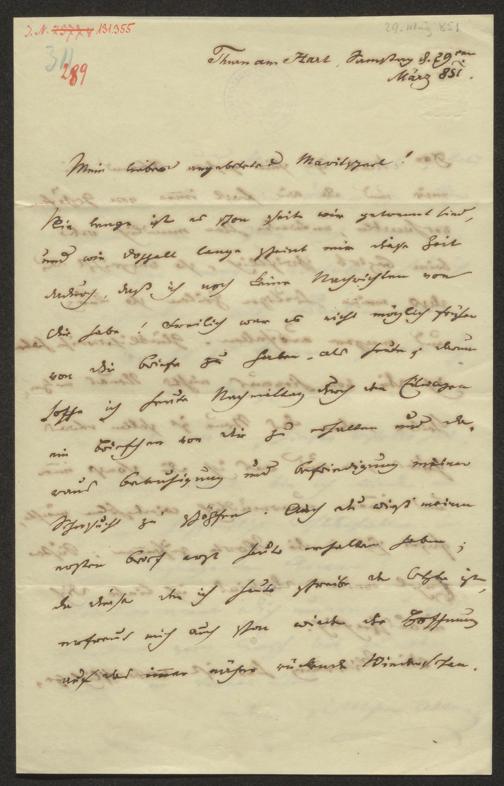 J. N. 25778 131.355
29. März 851
311
289
Thurn am Hart, Samstag d. 29ten
März 851.
Mein lieber angebeteter Moritzperl!
Wie lange ist es schon seit wir getrennt sind,
und wie doppelt lange scheint mir diese Zeit
dadurch, daß ich noch keine Nachrichten von
dir habe! Freilich war es nicht möglich früher
von dir Briefe zu haben, als heute; denn
hoffe ich heute Nachmittag durch den Eilwagen
ein Briefchen von dir zu erhalten und da-
raus Beruhigung und Befriedigung meiner
Sehnsucht zu schöpfen. Auch du wirst meinen
ersten Brief erst heute erhalten haben;
da dieser den ich heute schreibe der letzte ist,
erfreut mich auch schon wieder die Hoffnung
auf das immer näher rückende Wiedersehen.